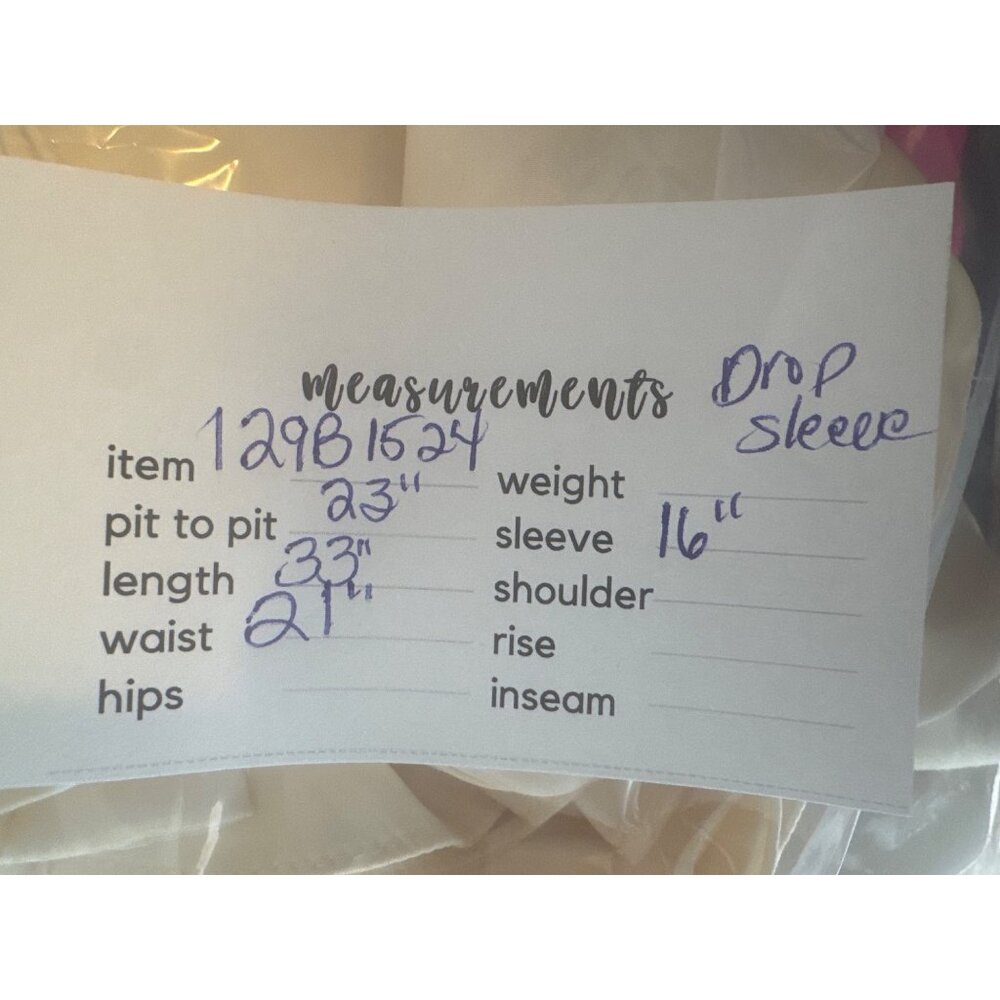 measurements Drop
sleeve
item 129B1524
pit to pit 23"
length 33"
waist 21"
hips
weight
sleeve 16"
shoulder
rise
inseam